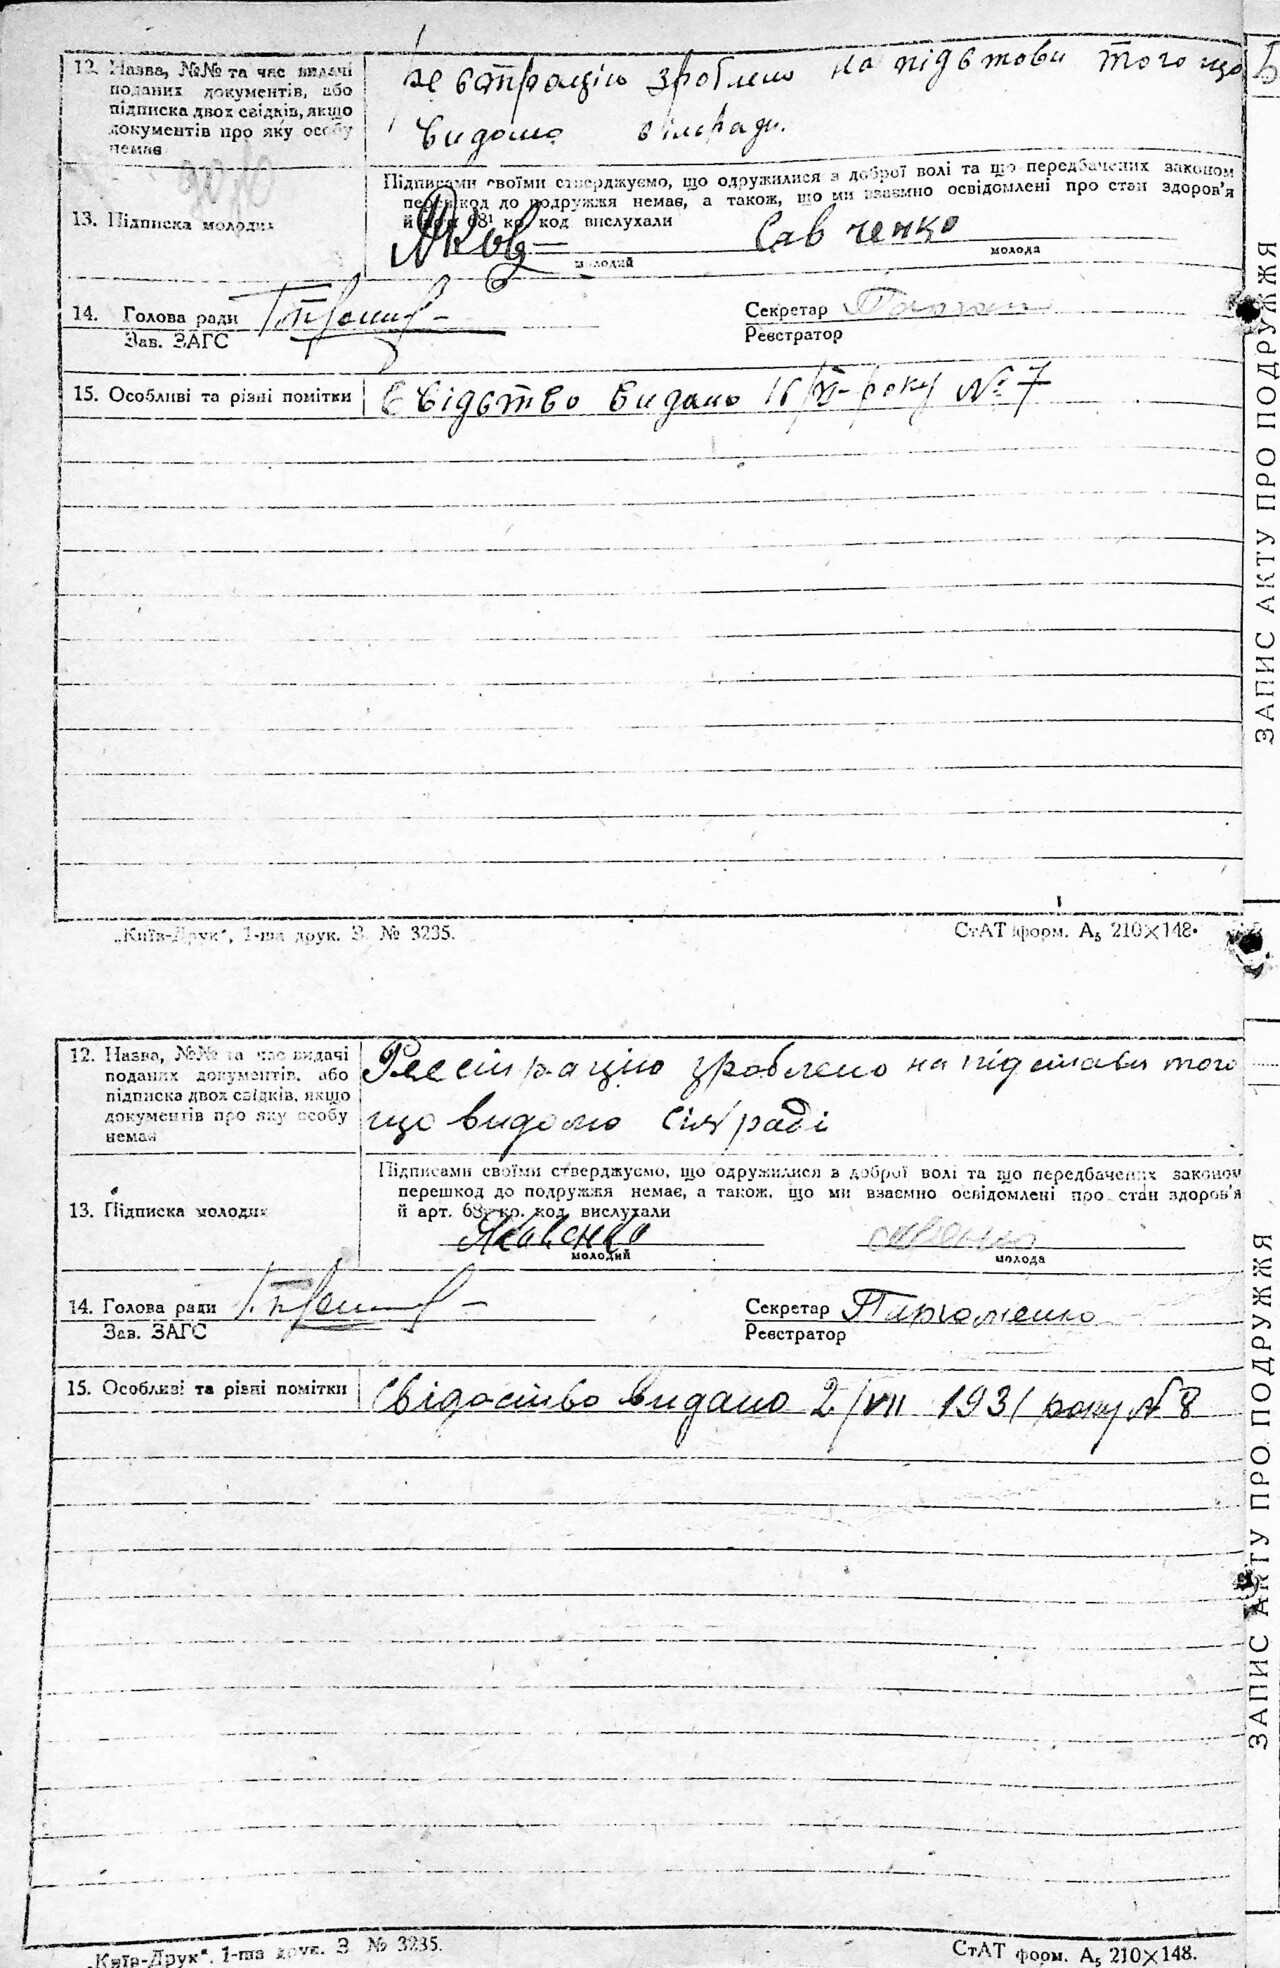 12. Назва, №№ та час видачі
поданих документів, або
підписка двох свідків, якщо
документів про яку особу
немає
зроблено на підстови того що
видомо сілради.
Підписами своїми стверджуємо, що одружилися з доброї волі та що передбачених законом
перешкод до подружжя немає, а також, що ми взаємно освідомлені про стан здоров'я
й арт. 68¹ кр. код вислухали
13. Підписка молодих
Савченко
молодий
молода
14. Голова ради
Секретар
Зав. ЗАГС
Реєстратор
15. Особливі та різні помітки
Свідєтво видано 16/VI- року № 7
„Київ-Друк", 1-ша друк. З. № 3235.
СтАТ форм. А₅ 210×148.
ЗАПИС АКТУ ПРО ПОДРУЖЖЯ
12. Назва, №№ та час видачі
поданих документів, або
підписка двох свідків, якщо
документів про яку особу
немає
Реєстрацію зроблено на підстави того
що видомо сілраді
Підписами своїми стверджуємо, що одружилися з доброї волі та що передбачених законом
перешкод до подружжя немає, а також, що ми взаємно освідомлені про стан здоров'я
й арт. 68¹ кр. код. вислухали
13. Підписка молодих
Яковенко
молодий
молода
14. Голова ради
Секретар Пархоменко
Зав. ЗАГС
Реєстратор
15. Особливі та різні помітки
Свідоство видано 2/VII 1931 року № 8
„Київ-Друк". 1-ша друк. З № 3235.
СтАТ форм. А₅ 210×148.
ЗАПИС АКТУ ПРО ПОДРУЖЖЯ